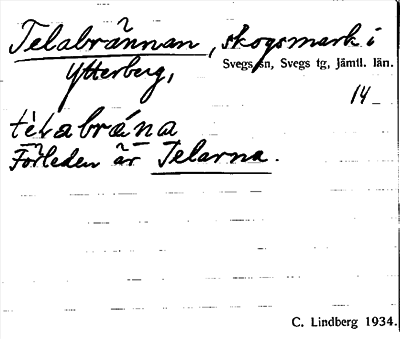 Telabrännan, skogsmark i
Svegs sn, Svegs tg, Jämtl. län.
Ytterberg,
14
Förleden är Telarna.
C. Lindberg 1934.